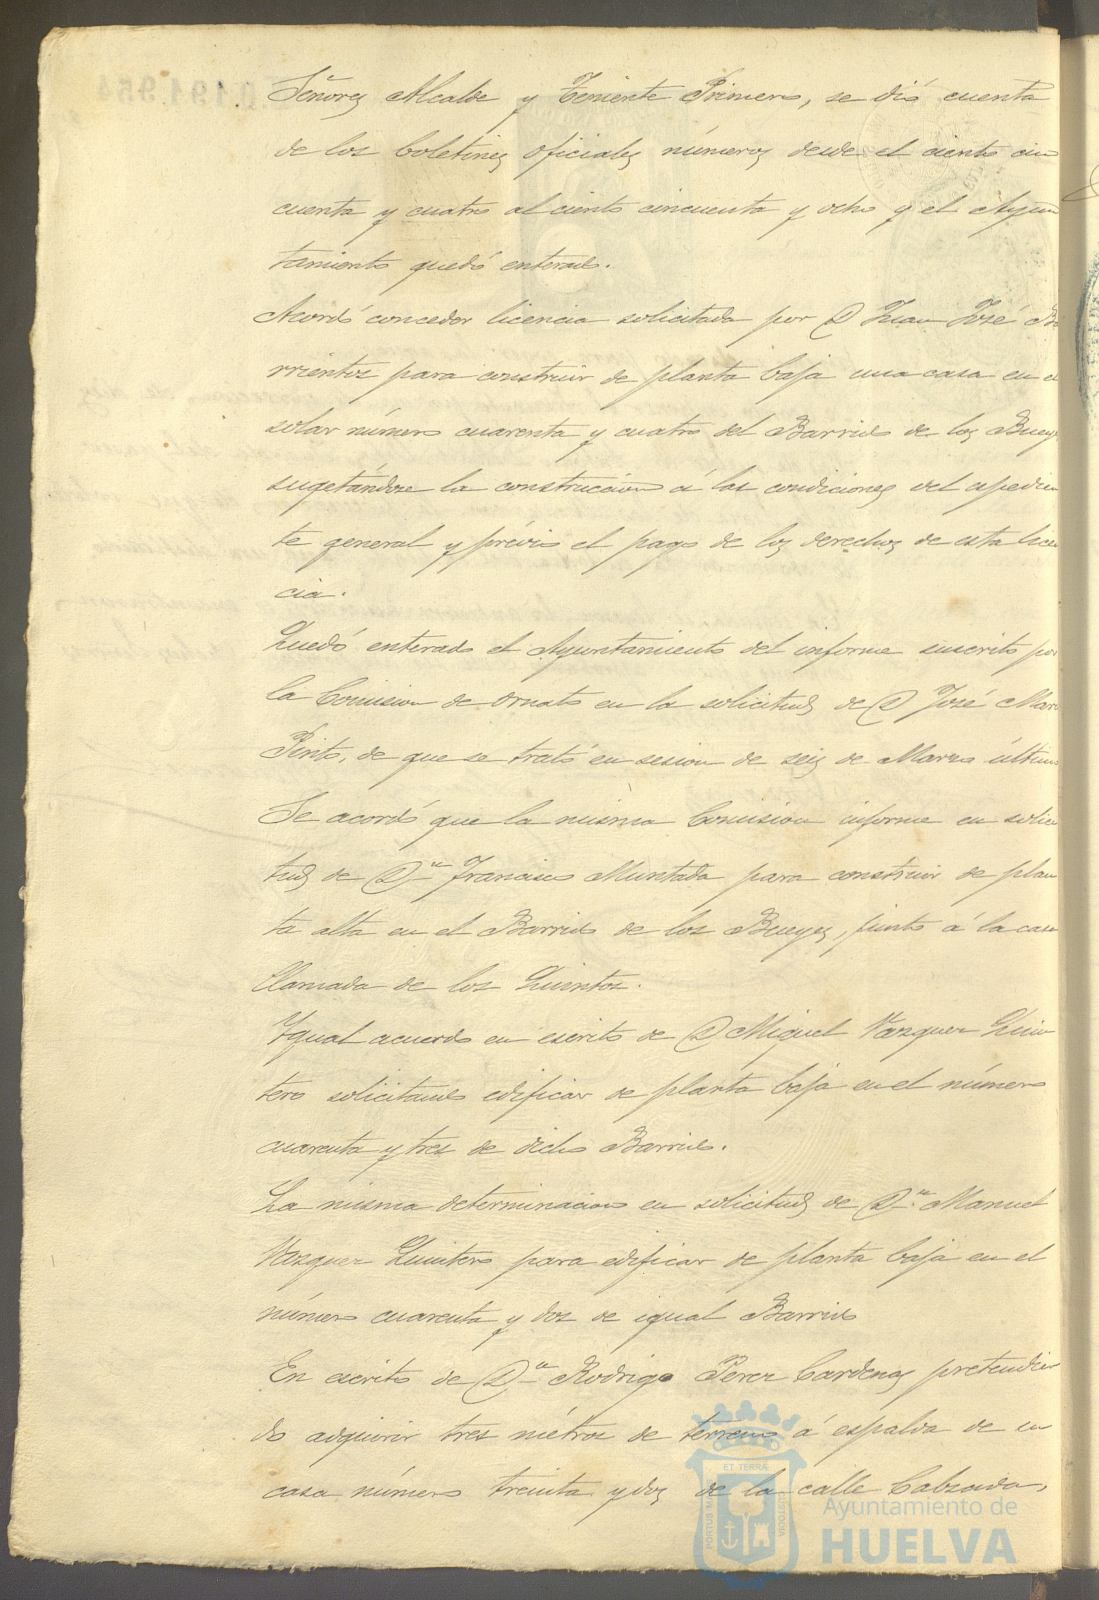 Señores Alcalde y Teniente Primero, se dió cuenta
de los boletines oficiales números desde el ciento cin
cuenta y cuatro al ciento cincuenta y ocho y el Ayun
tamiento quedó enterado.
Acordó conceder licencia solicitada por D Juan José Ba
rrientos para construir de planta baja una casa en el
solar número cuarenta y cuatro del Barrio de los Bueyes
sugetándose la construccion á las condiciones del espedien
te general y prévio el pago de los derechos de esta licen
cia.
Quedó enterado el Ayuntamiento del informe suscrito por
la Comision de ornato en la solicitud de D José Maria
Pinto, de que se trató en sesion de seis de Marzo último
Se acordó que la misma Comision informe en solici
tud de Dn Francisco Muntada para construir de plan
ta alta en el Barrio de los Bueyes, junto á la casa
llamada de los Quintos.
Ygual acuerdo en escrito de D Miguel Vazquez Quin
tero solicitando edificar de planta baja en el número
cuarenta y tres de dicho Barrio.
La misma determinacion en solicitud de Dn Manuel
Vazquez Quintero para edificar de planta baja en el
número cuarenta y dos de igual Barrio
En escrito de Dn Rodrigo Perez Cardenas pretendien
do adquirir tres métros de terreno á espalda de su
casa número treinta y dos de la calle Calzada,
PORTUS MARIS ET TERRÆ CUSTODIA
Ayuntamiento de
HUELVA